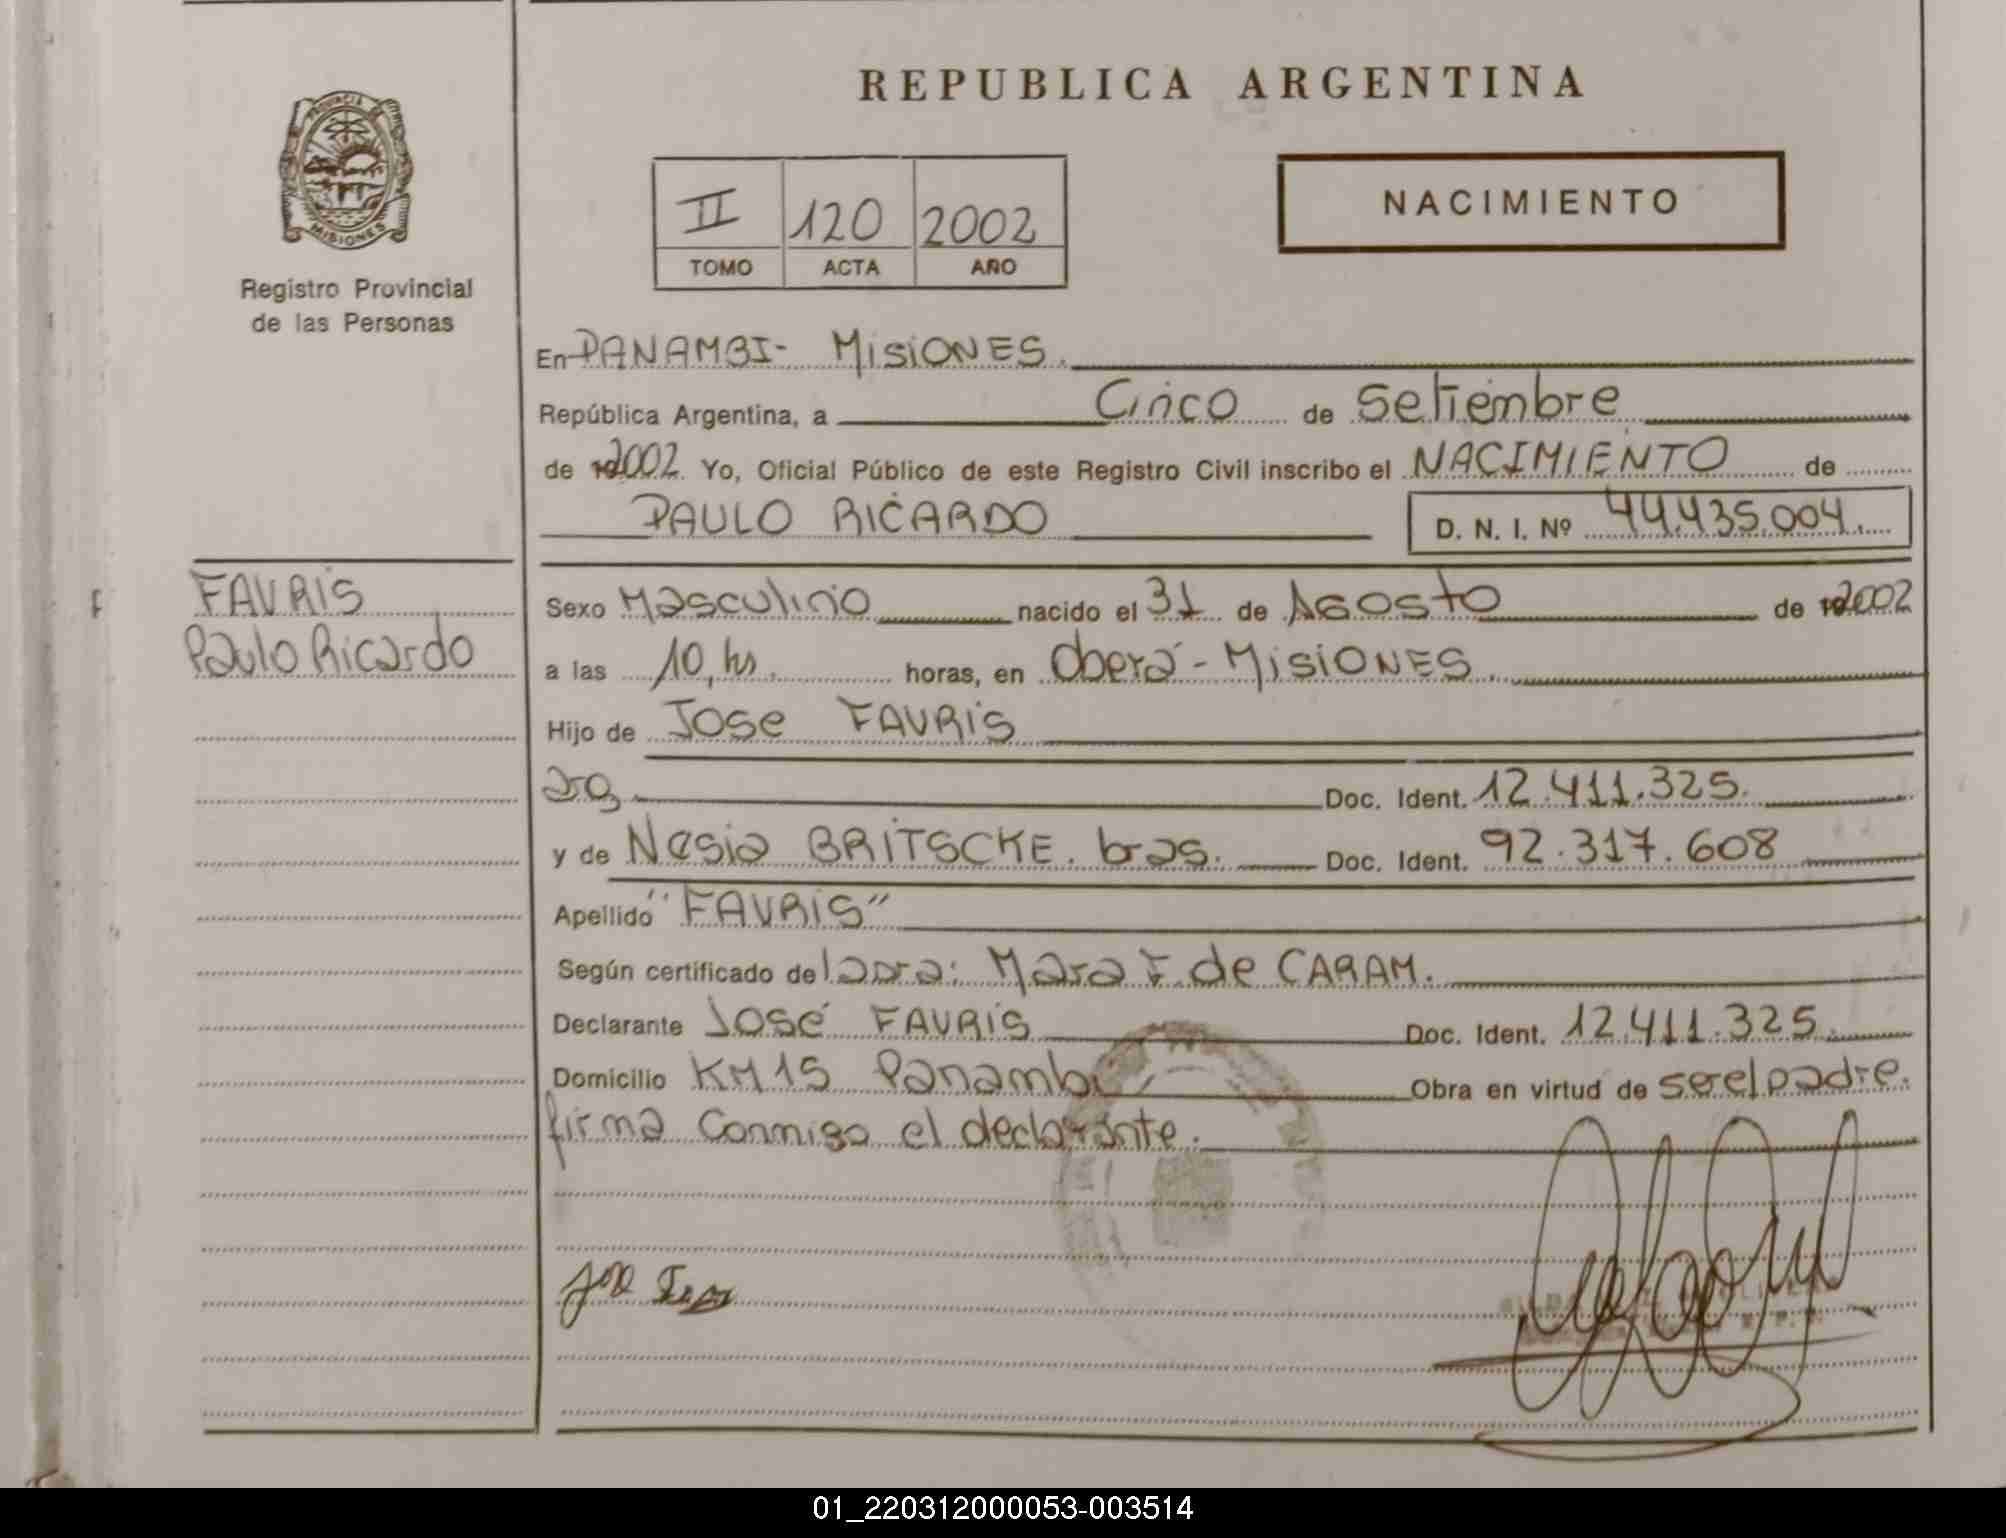 PROVINCIA DE
MISIONES
Registro Provincial
de las Personas
REPUBLICA ARGENTINA
NACIMIENTO
II 120 2002
TOMO ACTA AÑO
En PANAMBI- MISIONES.
República Argentina, a Cinco de Setiembre
de 192002 Yo, Oficial Público de este Registro Civil inscribo el NACIMIENTO de
PAULO RICARDO D. N. I. Nº 44.435.004.
FAVRIS
Paulo Ricardo
Sexo Masculino nacido el 31 de Agosto de 192002
a las 10,hs. horas, en Oberá - MISIONES.
Hijo de Jose FAVRIS
arg. Doc. Ident. 12.411.325.
y de Nesia BRITSCKE. bras. Doc. Ident. 92.317.608
Apellido "FAVRIS"
Según certificado de la Dra: Mara F. de CARAM.
Declarante José FAVRIS Doc. Ident. 12.411.325.
Domicilio KM 15 Panambi Obra en virtud de ser el padre.
firma conmigo el declarante.
01_220312000053-003514